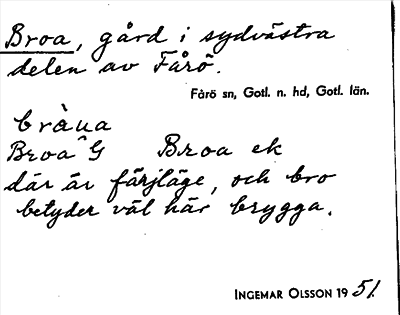 Broa, gård i sydvästra
delen av Fårö.
Fårö sn, Gotl. n. hd, Gotl. län.
brà̂ua
Broa G Broa ek
där är färjläge, och bro
betyder väl här brygga.
INGEMAR OLSSON 1951.